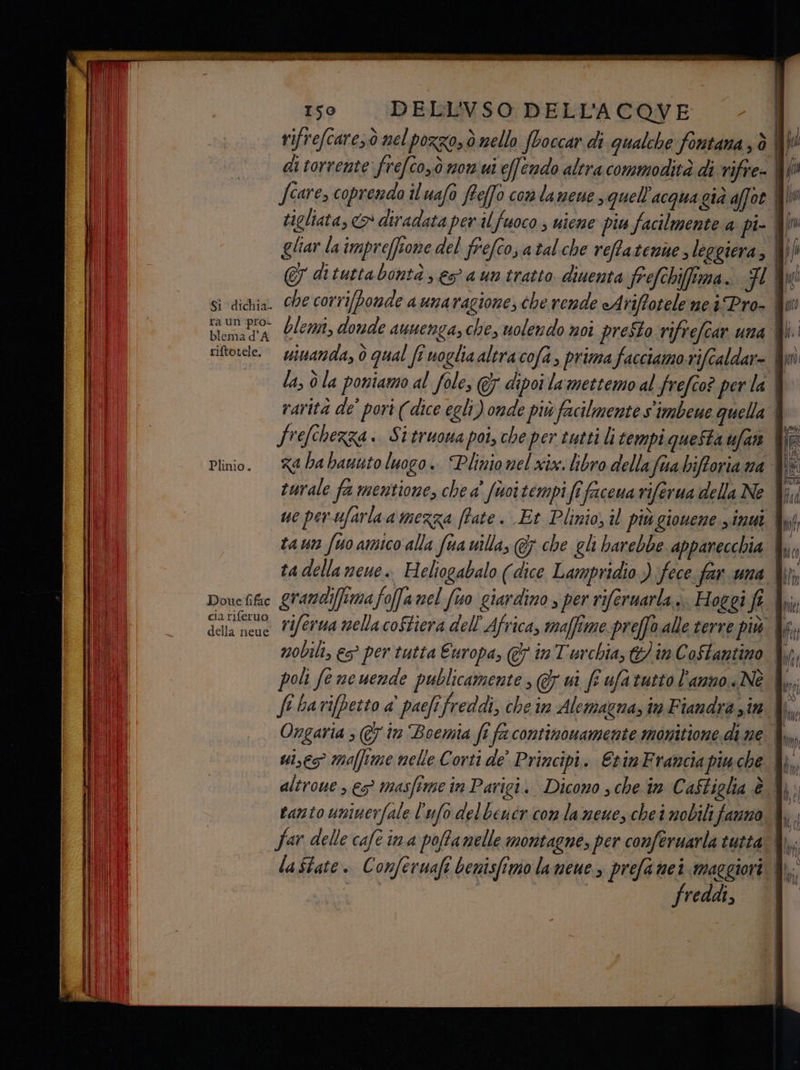 150 DELL'VSO DELL'ACQVE
rifreſcare, ò nel pozzo, ò nello ſboccar di qualche fontana, ò
di torrente freſco, ò non ui eſſendo altra commodità di rifre-
ſcare, coprendo il uaſo ſteſſo con la neue, quell'acqua già aſſot
tigliata, & diradata per il fuoco, uiene piu facilmente a pi-
gliar la impreſſione del freſco, a tal che reſta tenue, leggiera,
& di tutta bontà, & a un tratto diuenta freſchiſſima. Il
Si dichia-
ra un pro-
blema d'A
riſtotele.
che corriſponde a una ragione, che rende Ariſtotele ne i Pro-
blemi, donde auuenga, che, uolendo noi preſto rifreſcar una
uiuanda, ò qual ſi uoglia altra coſa, prima facciamo riſcaldar-
la, ò la poniamo al ſole, & dipoi la mettemo al freſco? per la
rarità de' pori (dice egli) onde più facilmente s'imbeue quella
freſchezza. Si truoua poi, che per tutti li tempi queſta uſan
Plinio.
za ha hauuto luogo. Plinio nel xix. libro della ſua hiſtoria na
turale fa mentione, che a' ſuoi tempi ſi faceua riſerua della Ne
ue per uſarla a mezza ſtate. Et Plinio, il più giouene, inui
ta un ſuo amico alla ſua uilla, & che gli harebbe apparecchia
ta della neue. Heliogabalo (dice Lampridio) fece far una
Doue ſi fac
cia riſeruo
della neue
grandiſſima foſſa nel ſuo giardino, per riſeruarla. Hoggi ſi
riſerua nella coſtiera dell'Africa, maſſime preſſo alle terre più
nobili, & per tutta Europa, & in Turchia, & in Coſtantino
poli ſe ne uende publicamente, & ui ſi uſa tutto l'anno. Nè
ſi ha riſpetto a' paeſi freddi, che in Alemagna, in Fiandra, in
Ongaria, & in Boemia ſi fa continouamente monitione di ne
ui, & maſſime nelle Corti de' Principi. Et in Francia piu che
altroue, & masſime in Parigi. Dicono, che in Caſtiglia è
tanto uniuerſale l'uſo del beuer con la neue, che i nobili fanno
far delle caſe in a poſta nelle montagne, per conſeruarla tutta
la ſtate. Conſeruaſi benisſimo la neue, preſa nei maggiori
freddi,